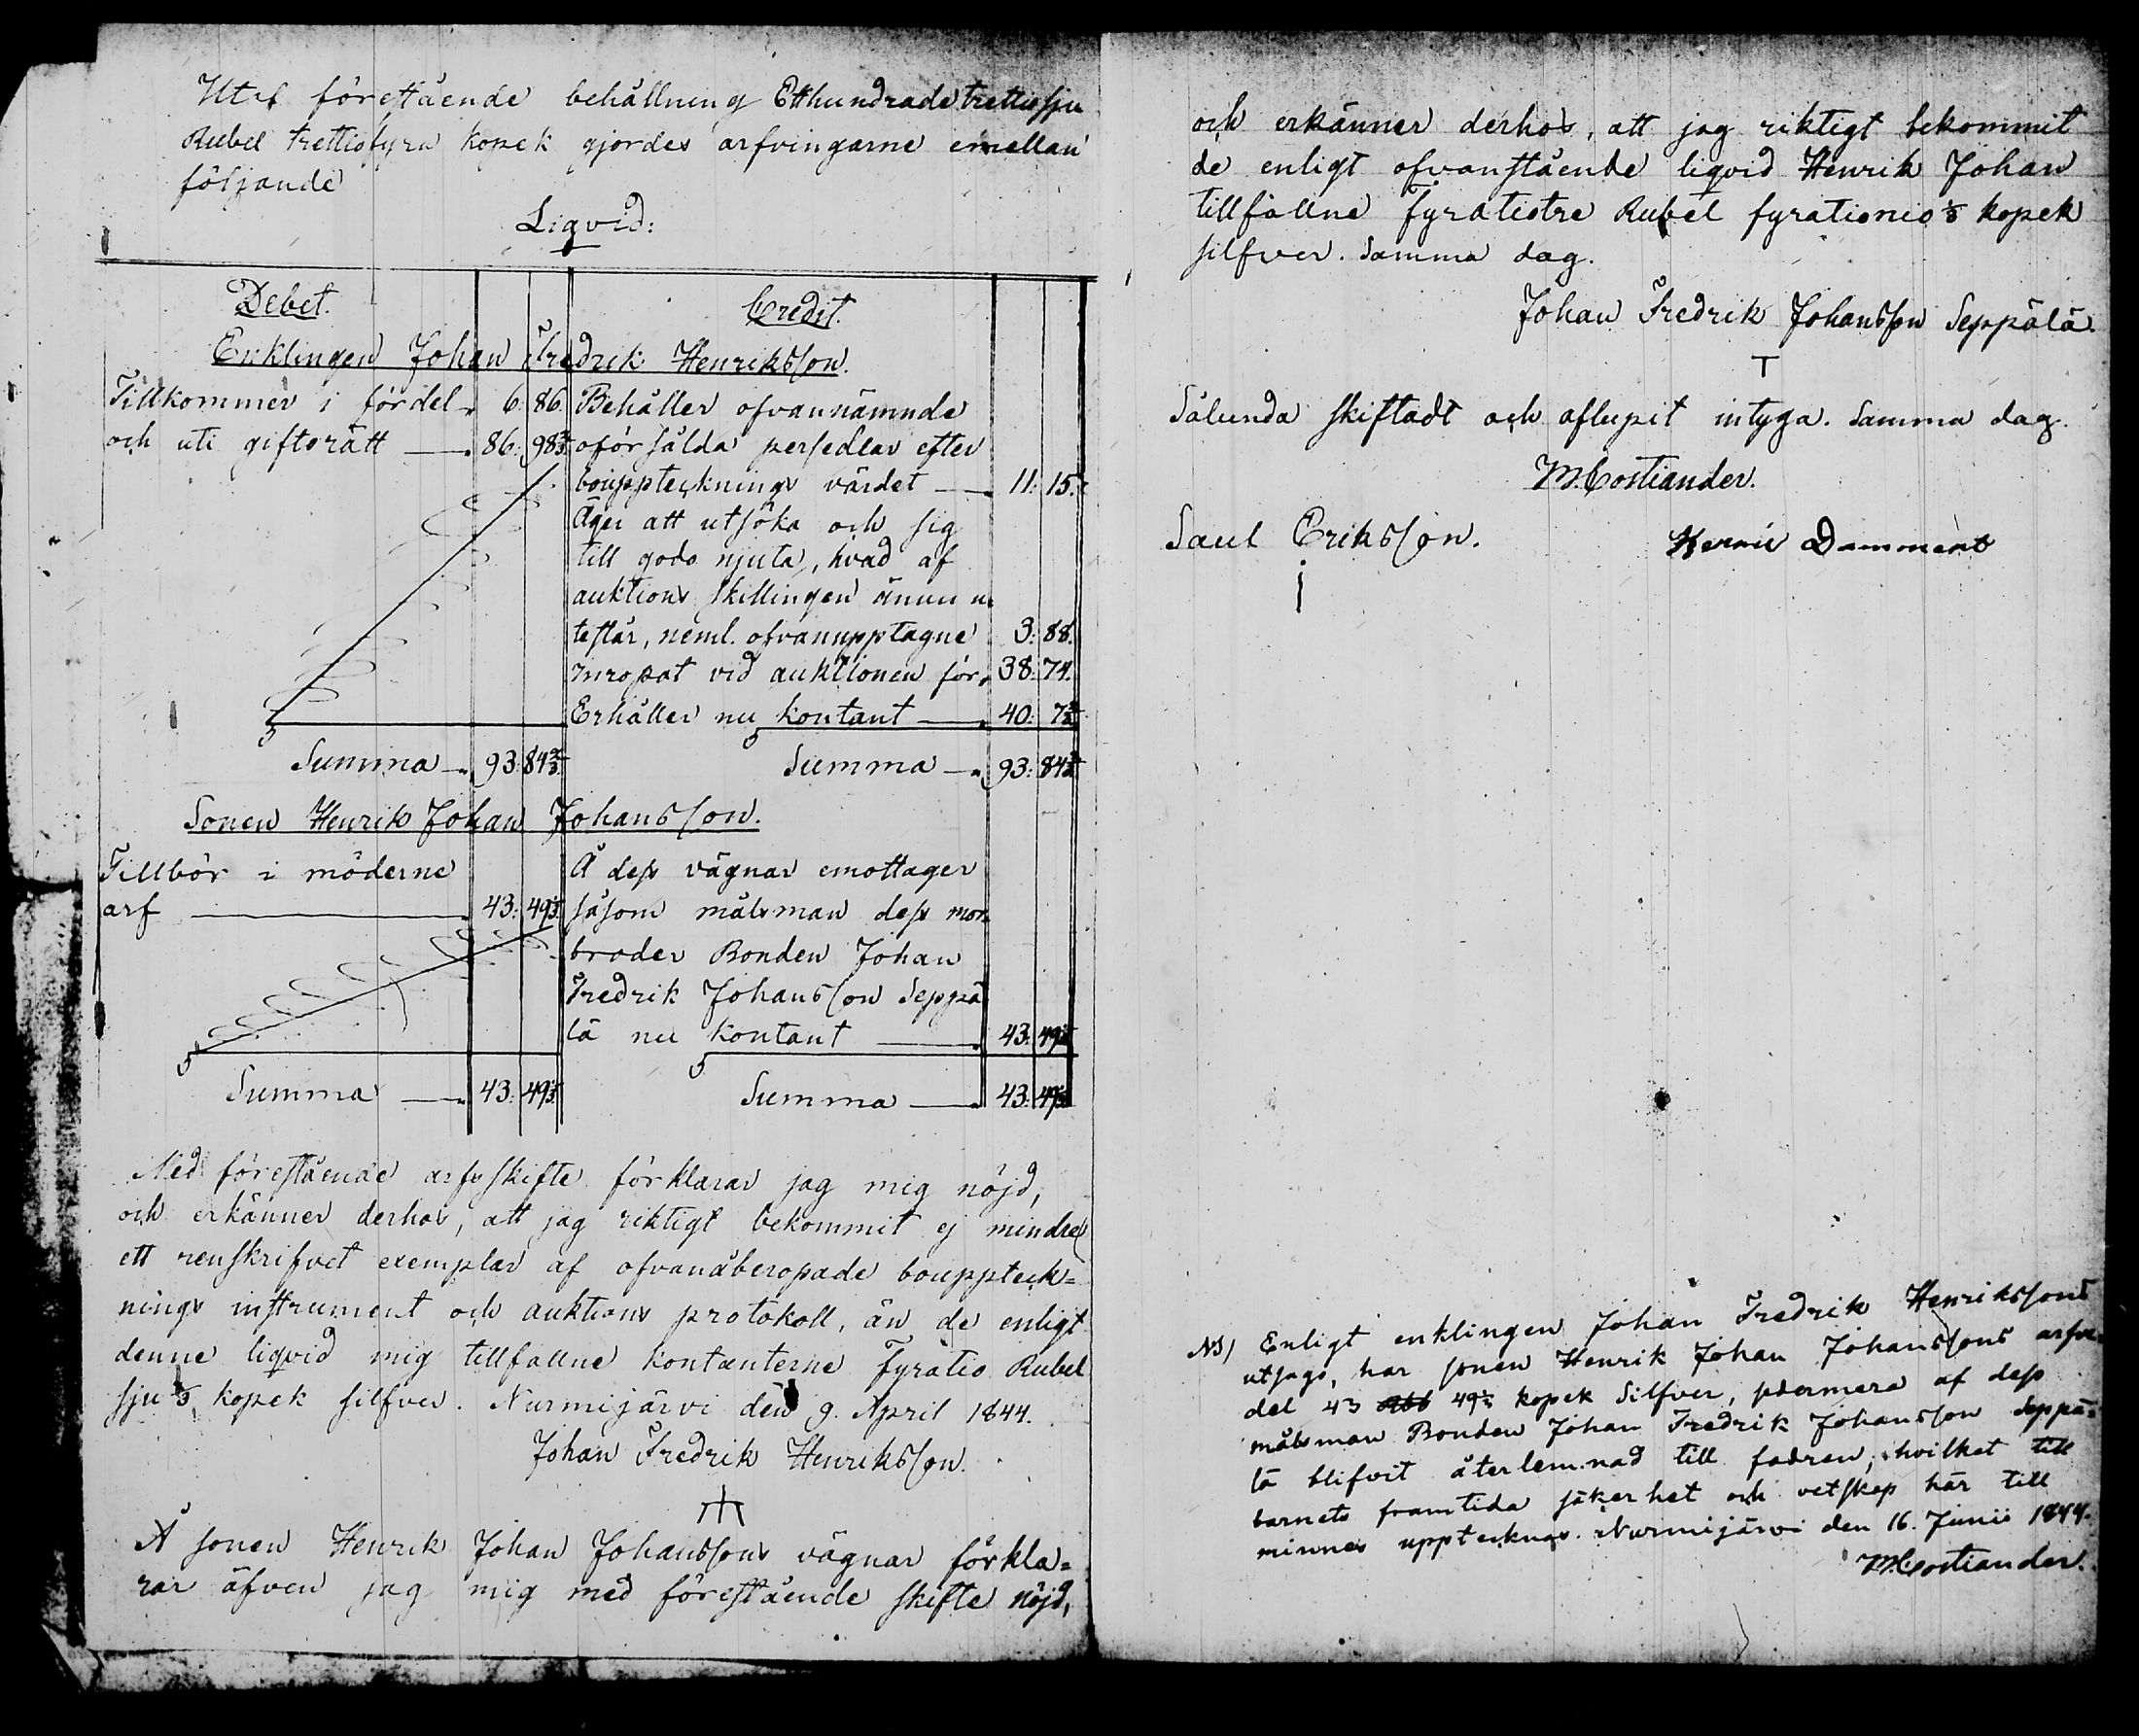 Utaf förestående behållning Etthundradetrettiosju
Rubel trettiofyra kopek gjordes arfvingarne emellan
följande
Liqvid:
Debet. Credit.
Enklingen Johan Fredrik Henriksson.
Tillkommer i fördel 6: 86.
och uti giftorätt 86: 98 2/3
Behåller ofvannämnde
oförsålda persedlar efter
bouppteknings värdet 11: 15.
Äger att utsöka och sig
till godo njuta, hvad af
auktions skillingen ännu u
testår, neml. ofvanupptagne 3: 88.
Inropat vid auktionen för 38: 74.
Erhåller nu kontant 40: 7 2/3
Summa 93: 84 2/3 Summa 93: 84 2/3
Sonen Henrik Johan Johansson.
Tillbör i möderne
arf 43: 49 1/3
Å dess vägnar emottager
såsom målsman dess mor
broder Bonden Johan
Fredrik Johansson Seppä
lä nu kontant 43: 49 1/3
Summa 43: 49 1/3 Summa 43: 49 1/3
Med förestående arfsskifte förklarar jag mig nöjd,
och erkänner derhos, att jag riktigt bekommit ej mindre
ett renskrifvet exemplar af ofvanåberopade bouppteck=
nings instrument och auktions protokoll, än de enligt
denne liqvid mig tillfallne kontanterne Fyratio Rubel
sju 2/3 kopek silfver. Nurmijärvi den 9. April 1844.
Johan Fredrik Henriksson.
Å sonen Henrik Johan Johanssons vägnar förkla=
rar äfven jag mig med förestående skifte nöjd,
och erkänner derhos, att jag riktigt bekommit
de enligt ofvanstående liqvid Henrik Johan
tillfallne fyratiotre Rubel fyrationio 1/3 kopek
silfver. Samma dag.
Johan Fredrik Johansson Seppälä.
Sålunda skiftadt och aflupit intyga. Samma dag.
M. Costiander.
Saul Eriksson. Damment
NB) Enligt enklingen Johan Fredrik Henrikssons
utsago, har sonen Henrik Johan Johanssons arfve
del 43 Rbl 49 1/3 kopek Silfver, sedermera af dess
målsman Bonden Johan Fredrik Johansson Seppä=
lä blifvit återlemnad till fadren, hvilket till
barnets framtida säkerhet och vetskap här till
minnes upptecknas. Nurmijärvi den 16. Junii 1844.
M. Costiander.